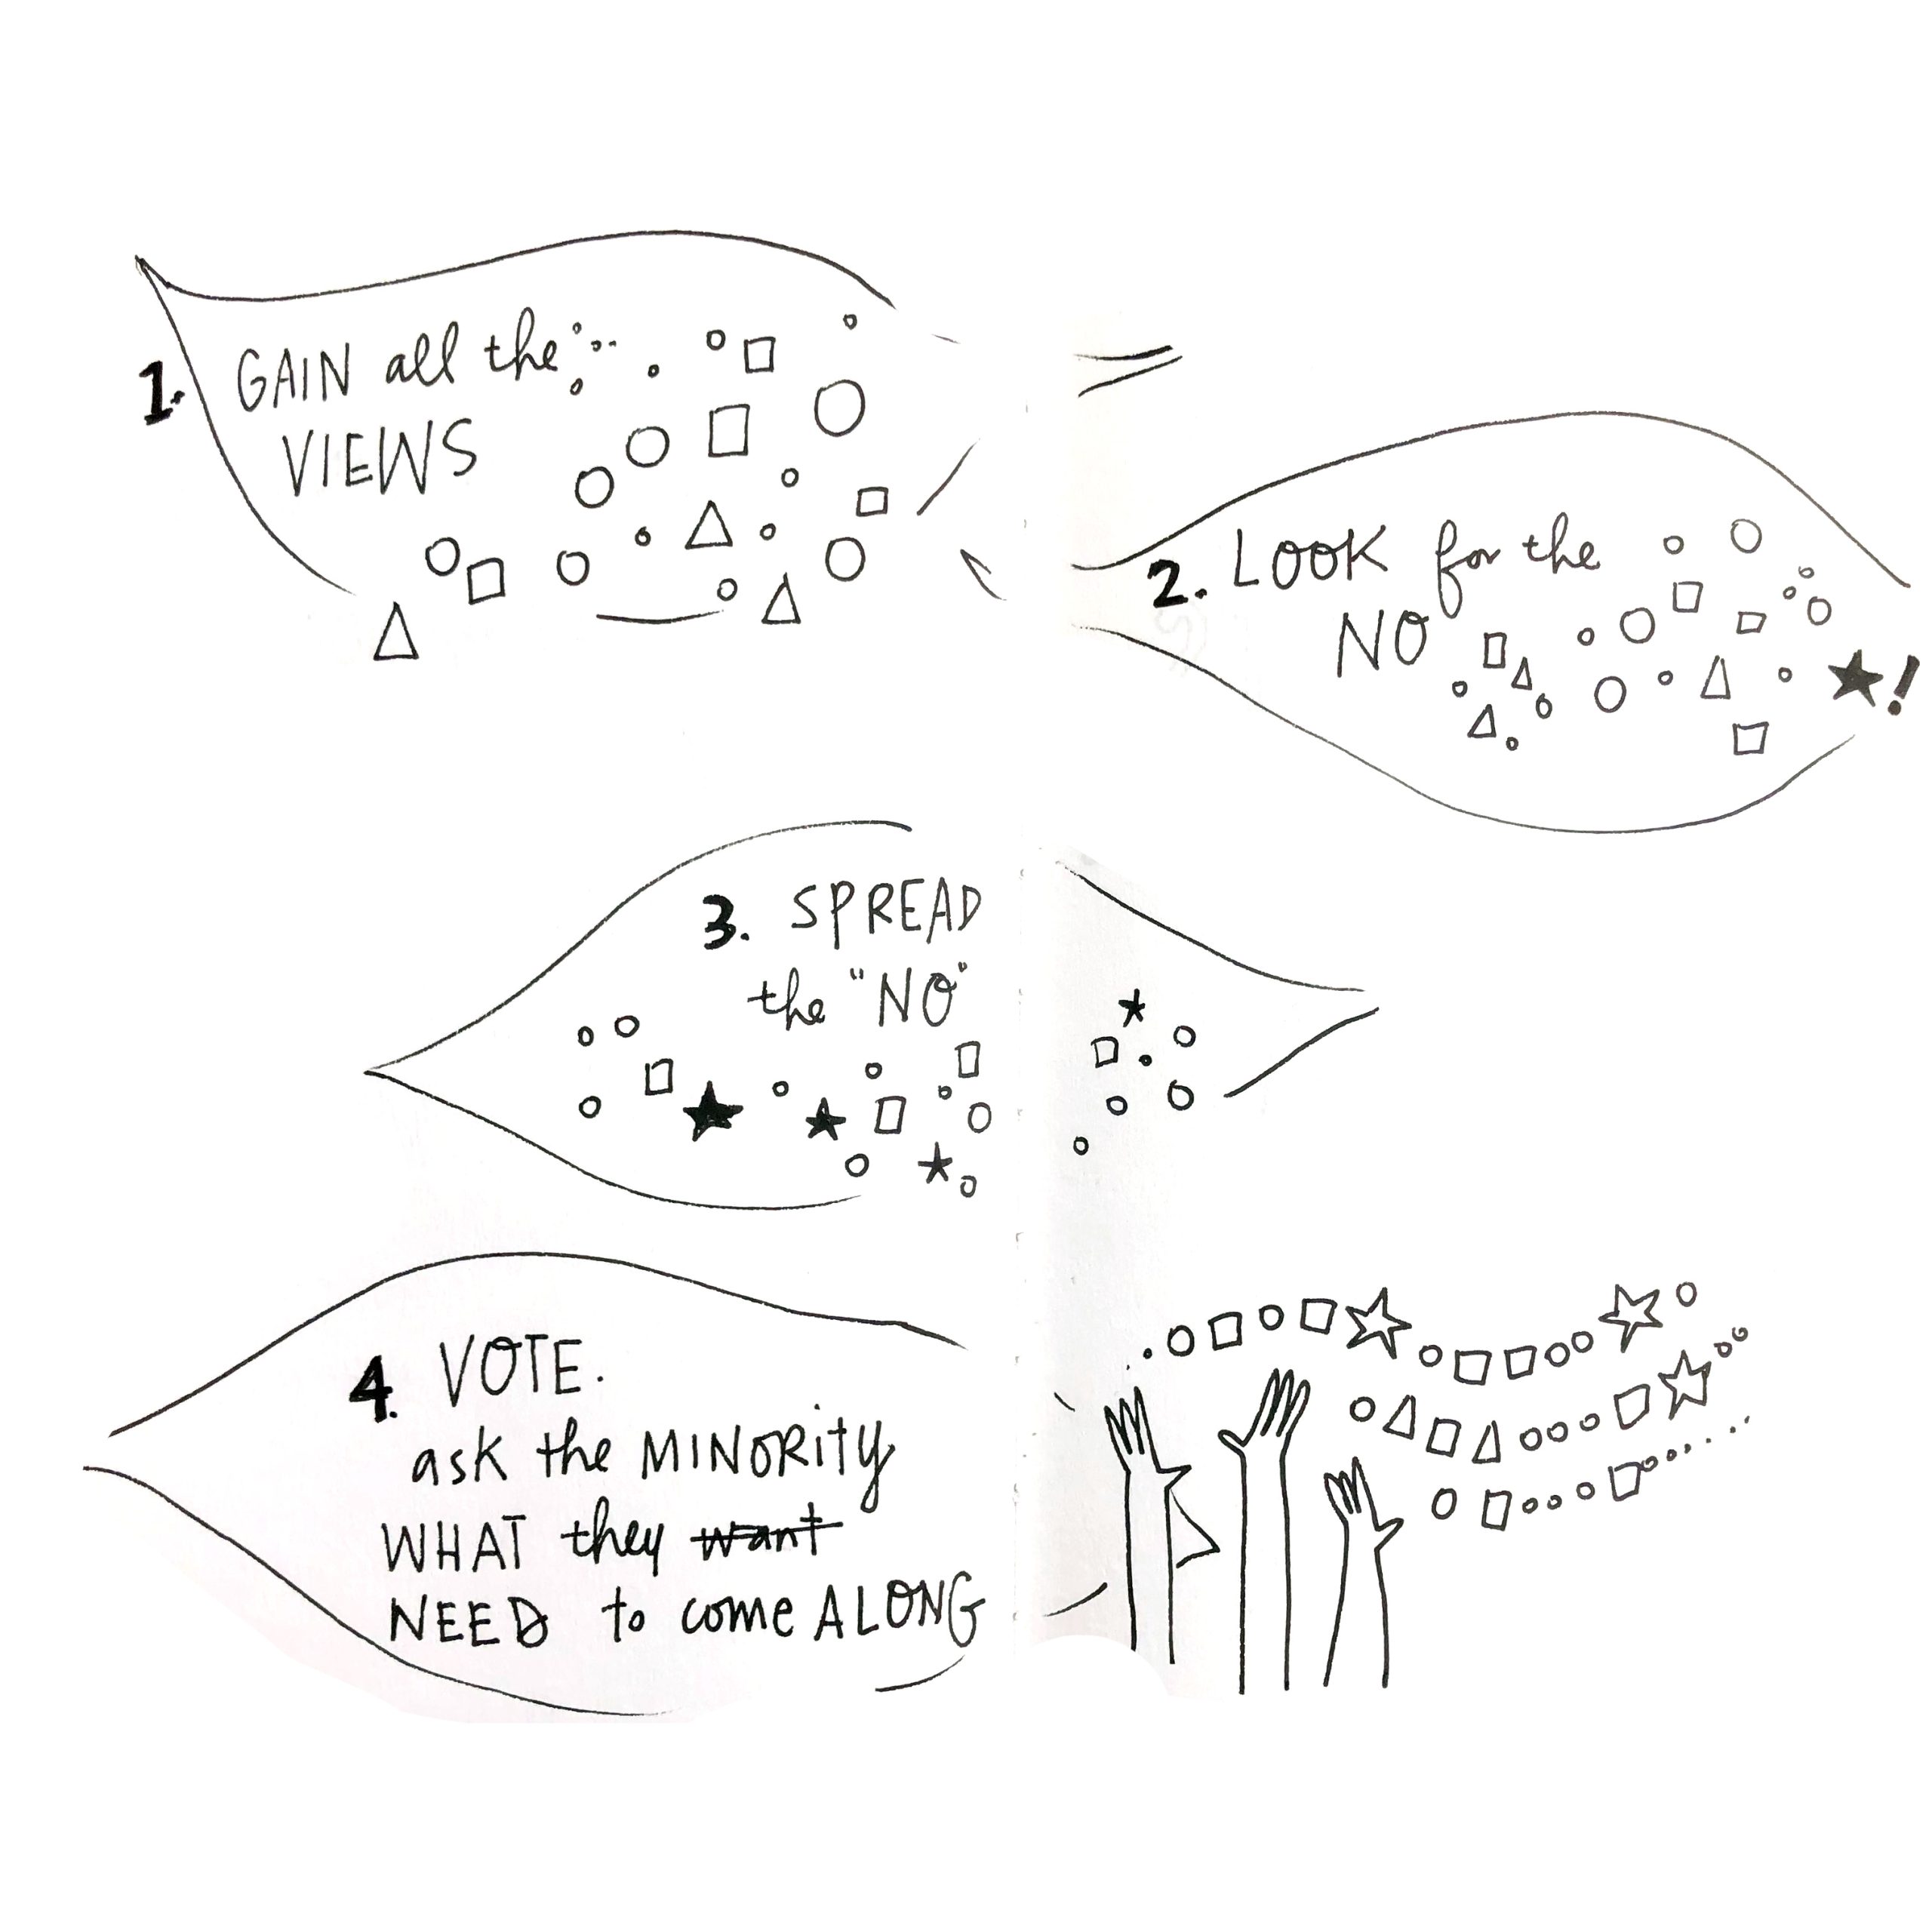 1. GAIN all the
VIEWS
2. LOOK for the
NO
!
3. SPREAD
the "NO"
4. VOTE.
ask the MINORity
WHAT they want
NEED to come ALONG